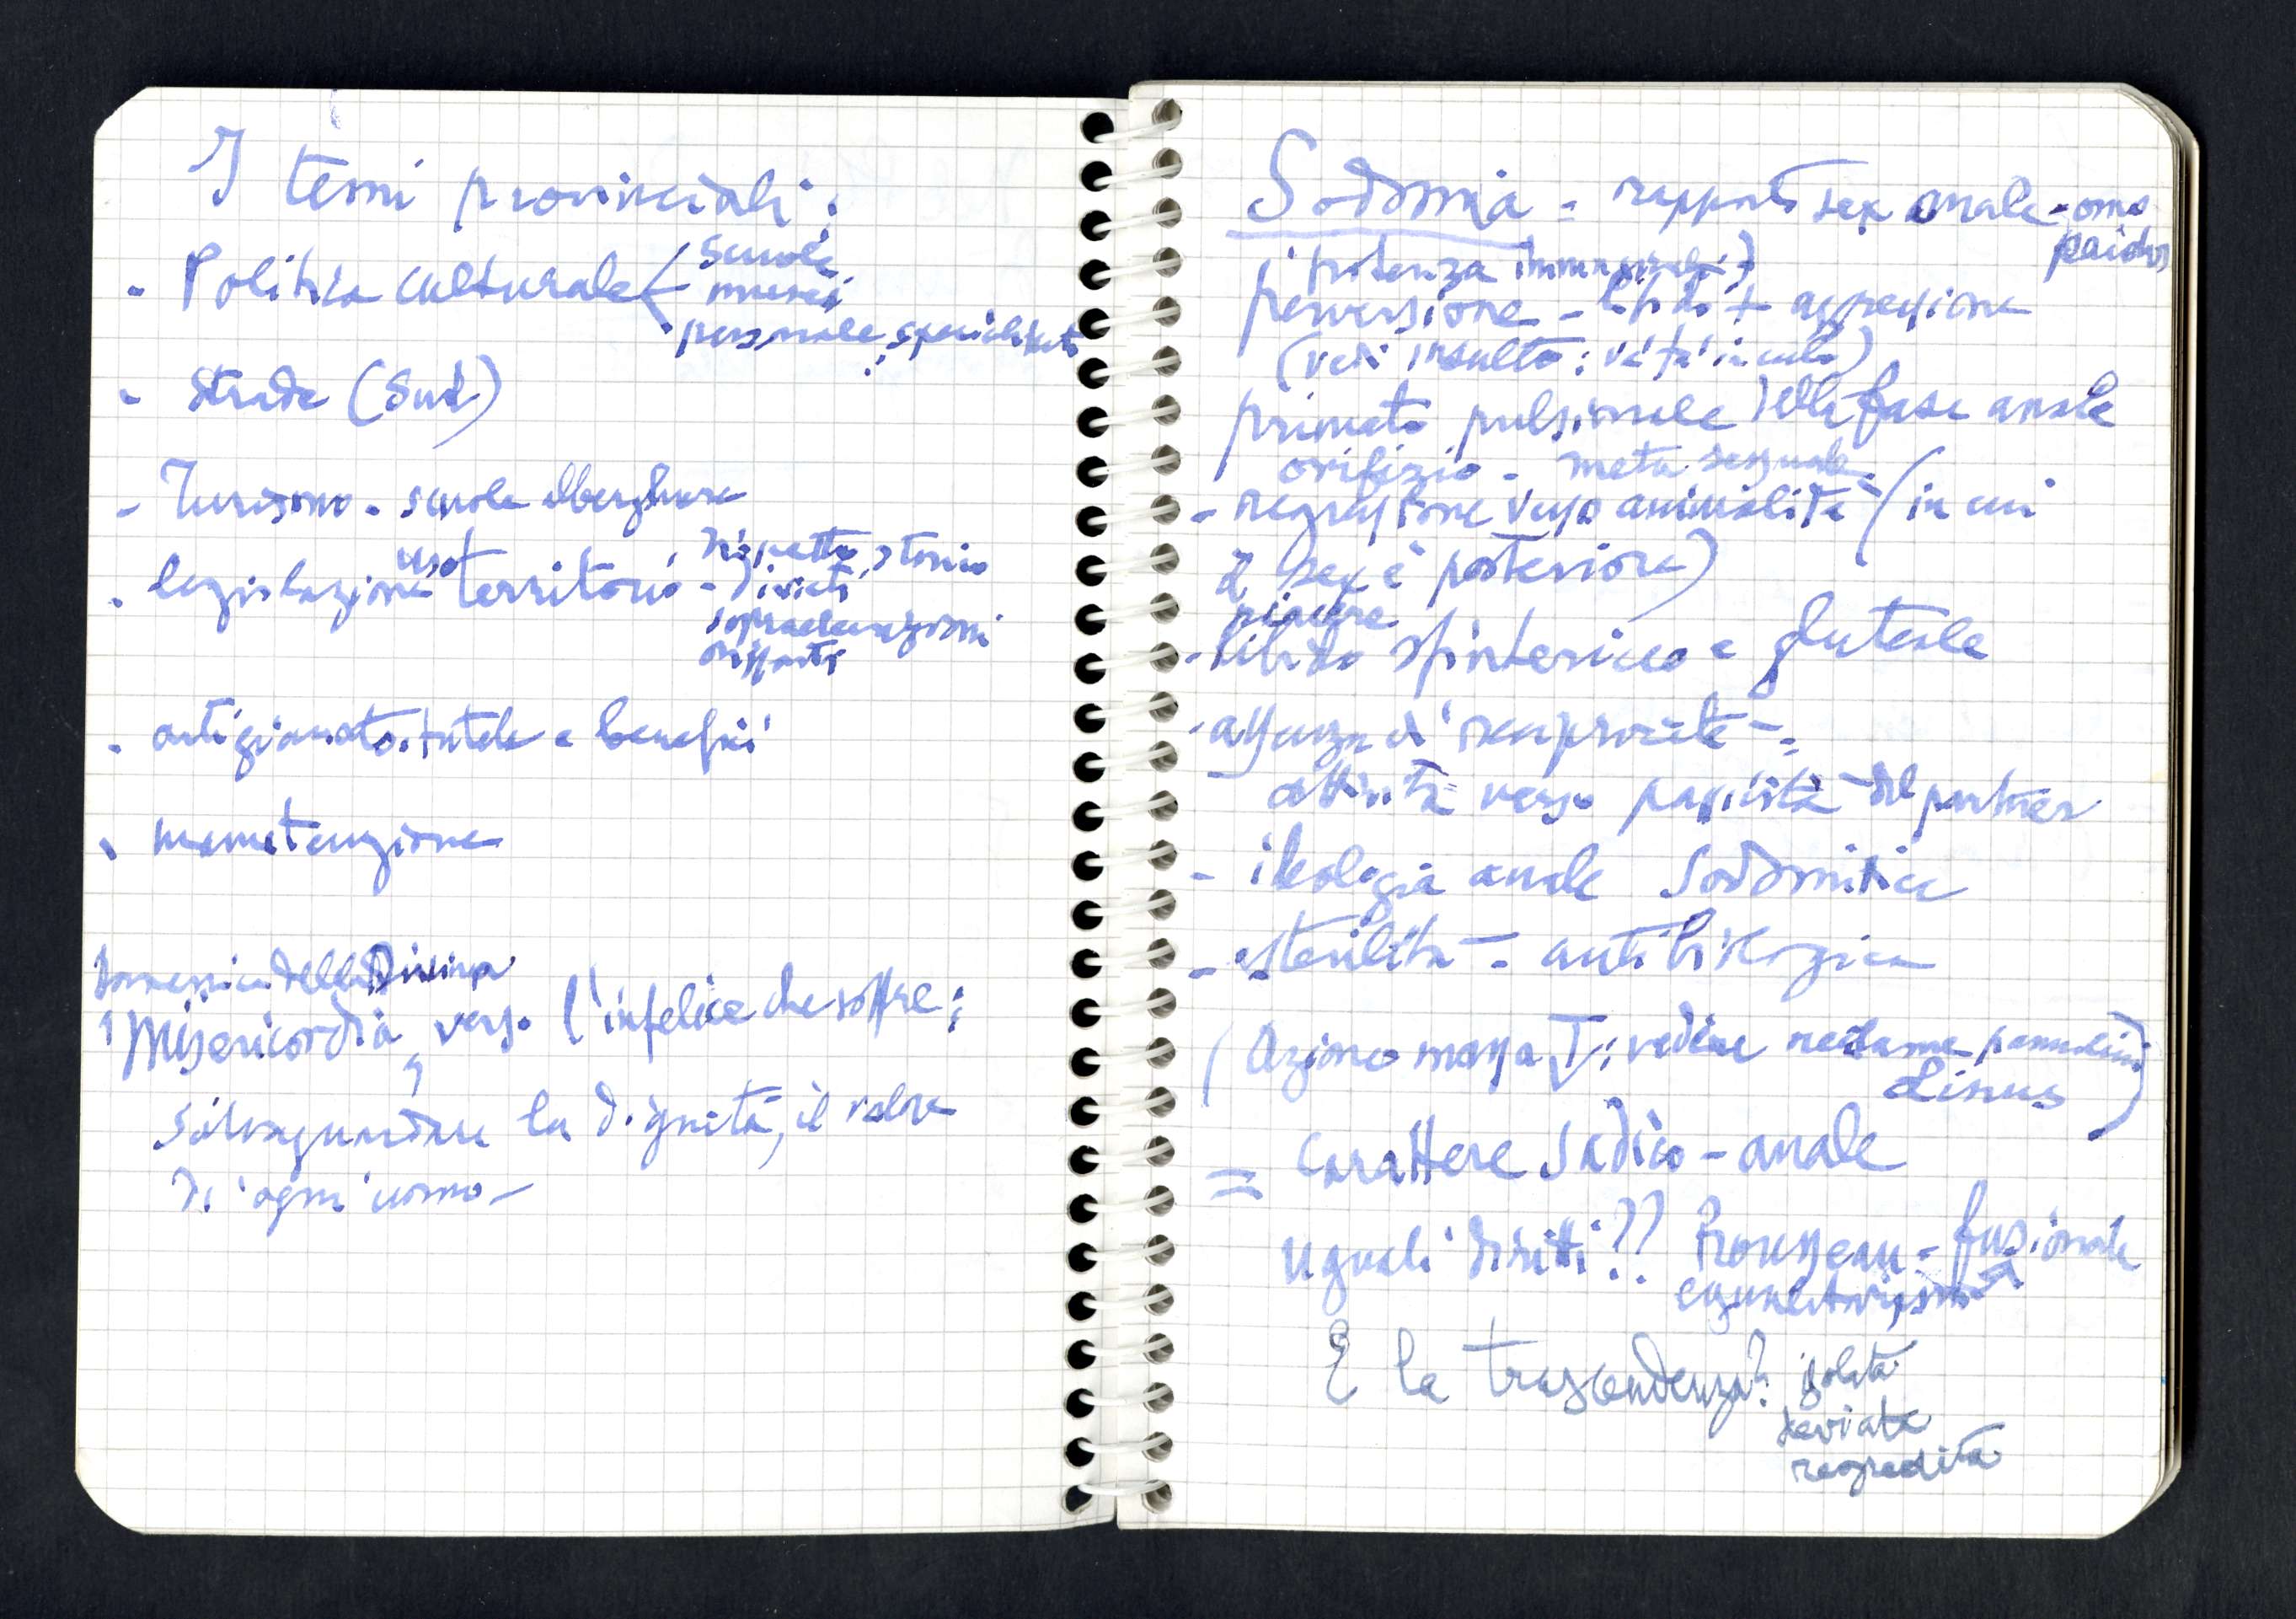 I temi provinciali:
- Politica culturale < scuole
musei
personale specializzato
- strade (Sud)
- Turismo - scuole alberghiere
- legislazione uso territorio - rispetto storico
divieti
sopraelevazioni
- artigianato. tutela e benefici
- manutenzione
Domenica della Divina
Misericordia, verso l'infelice che soffre;
salvaguardare la dignità, il valore
di ogni uomo -
Sodomia = rapporto sex anale - omo
paidos
perversione - libido + aggressione
(vedi insulto: va' fa' in culo)
primato pulsionale della fase anale
orifizio - meta sessuale
- regressione verso animalità (in cui
il sex è posteriore)
piacere
- libido sfinterico e gluteale
- assenza di reciprocità =
attività verso passività del partner
- ideologia anale sodomitica
- sterilità - antibiologica
(Azione massa TV: vedere reclame pannolini
Linus)
= carattere sadico-anale
uguali diritti?? Rousseau - fusionale
egualitarismo
E la trascendenza? isolata
deviata
regredita